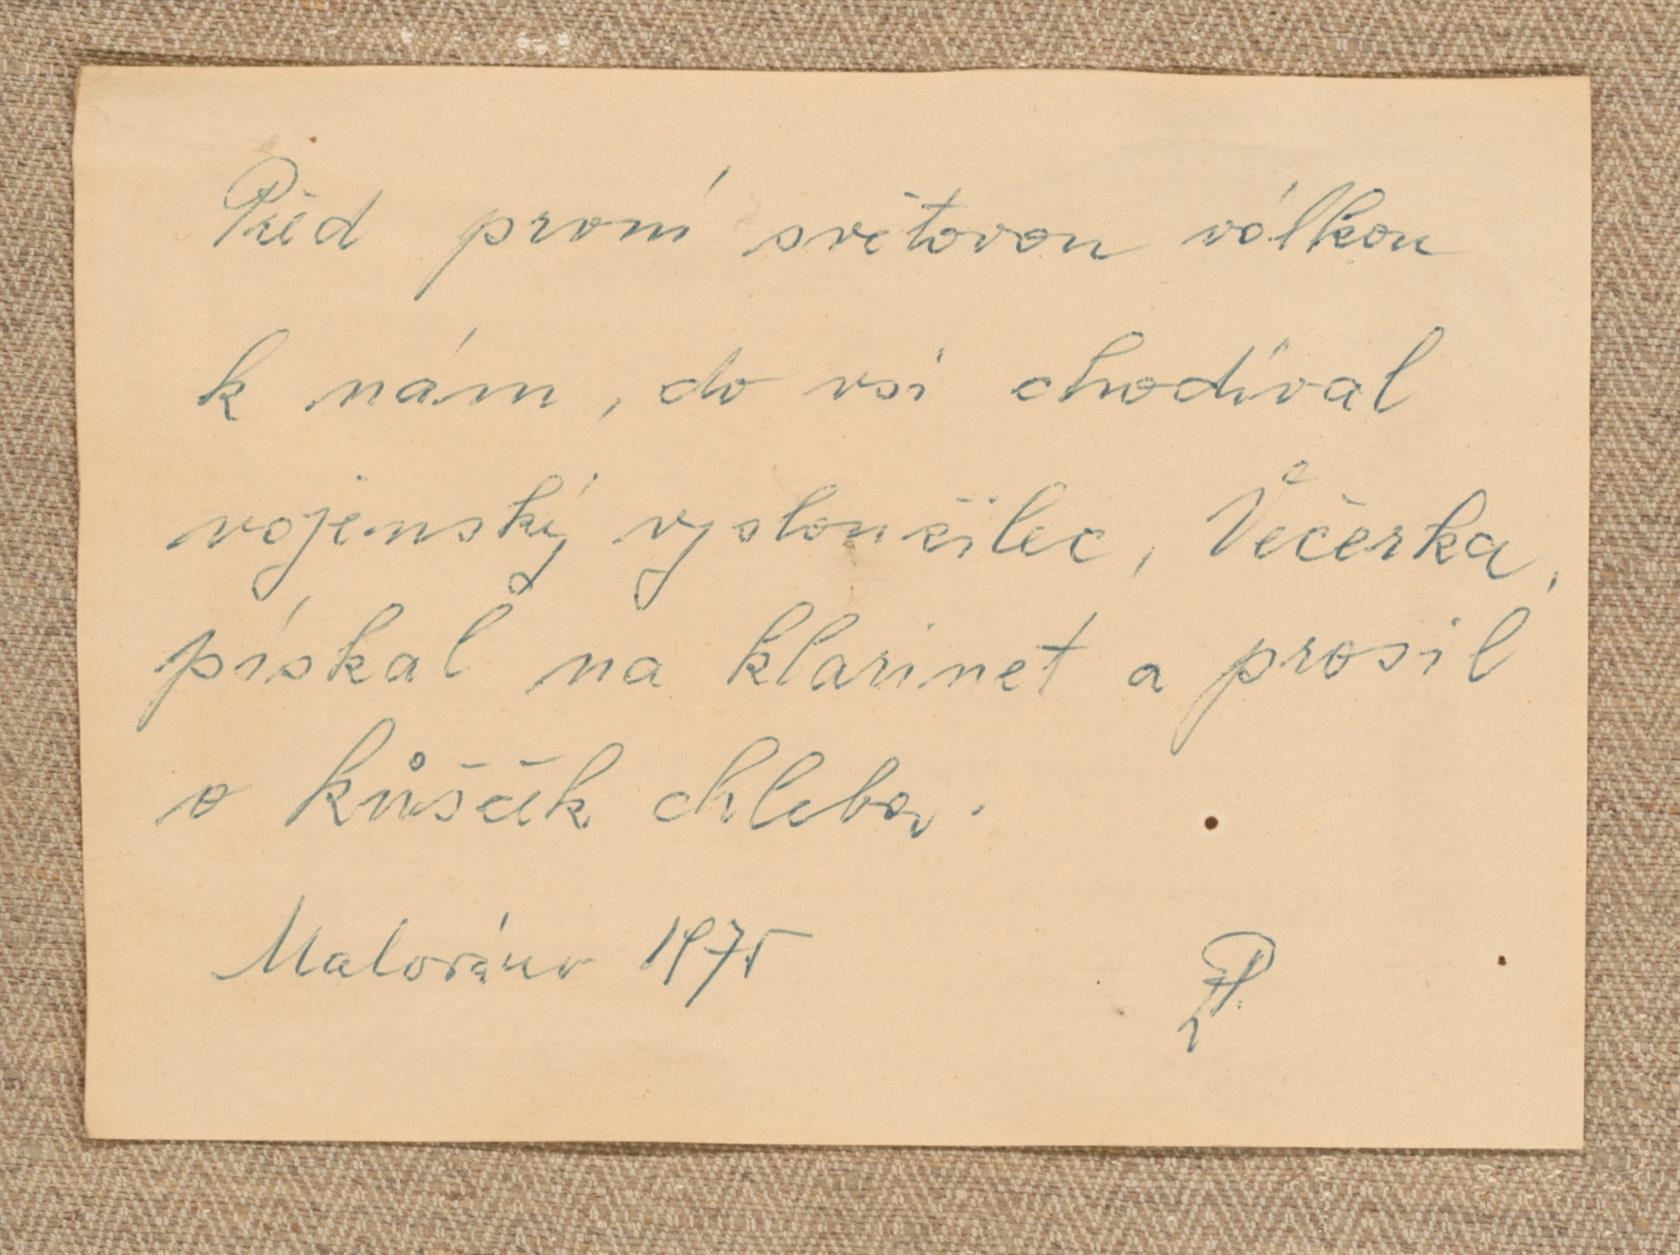 Před první světovou válkou
k nám, do vsi chodíval
vojenský vysloužilec, Večerka,
pískal na klarinet a prosil
o kůšček chleba.
Malováno 1975